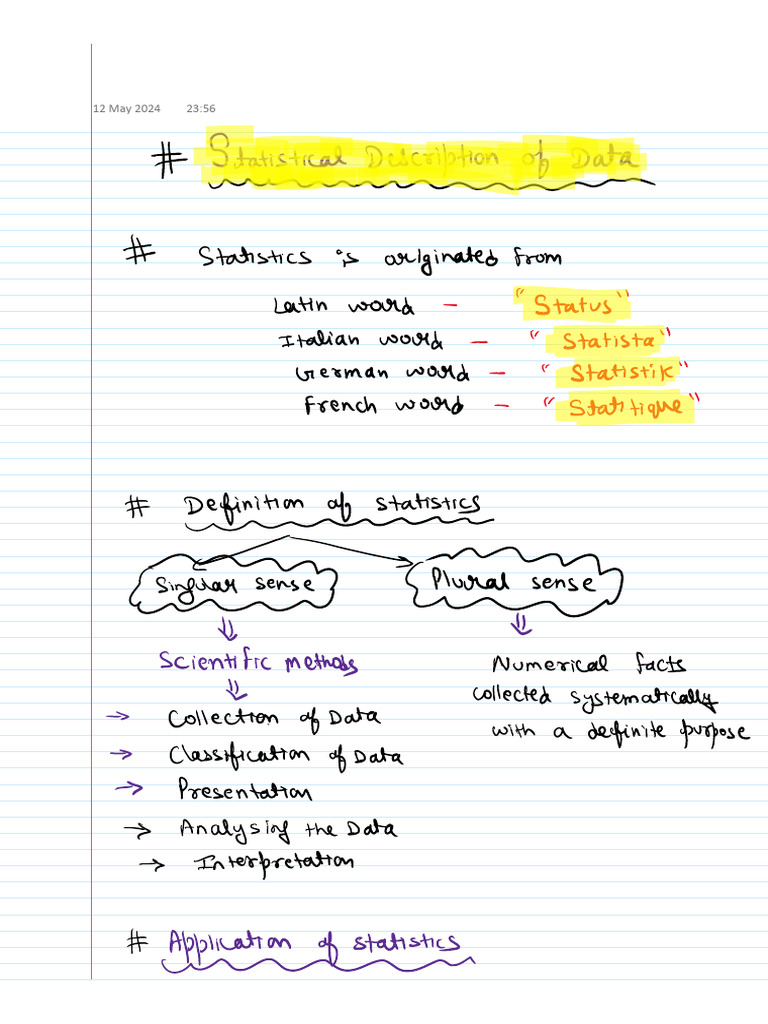 12 May 2024 23:56
# Statistical Description of Data
# Statistics is originated from
Latin word – "Status"
Italian word – "Statista"
German word – "Statistik"
French word – "Statitique"
# Definition of statistics
Singular sense
Plural sense
Scientific methods
→ Collection of Data
→ Classification of Data
→ Presentation
→ Analysing the Data
→ Interpretation
Numerical facts
collected systematically
with a definite purpose
# Application of statistics